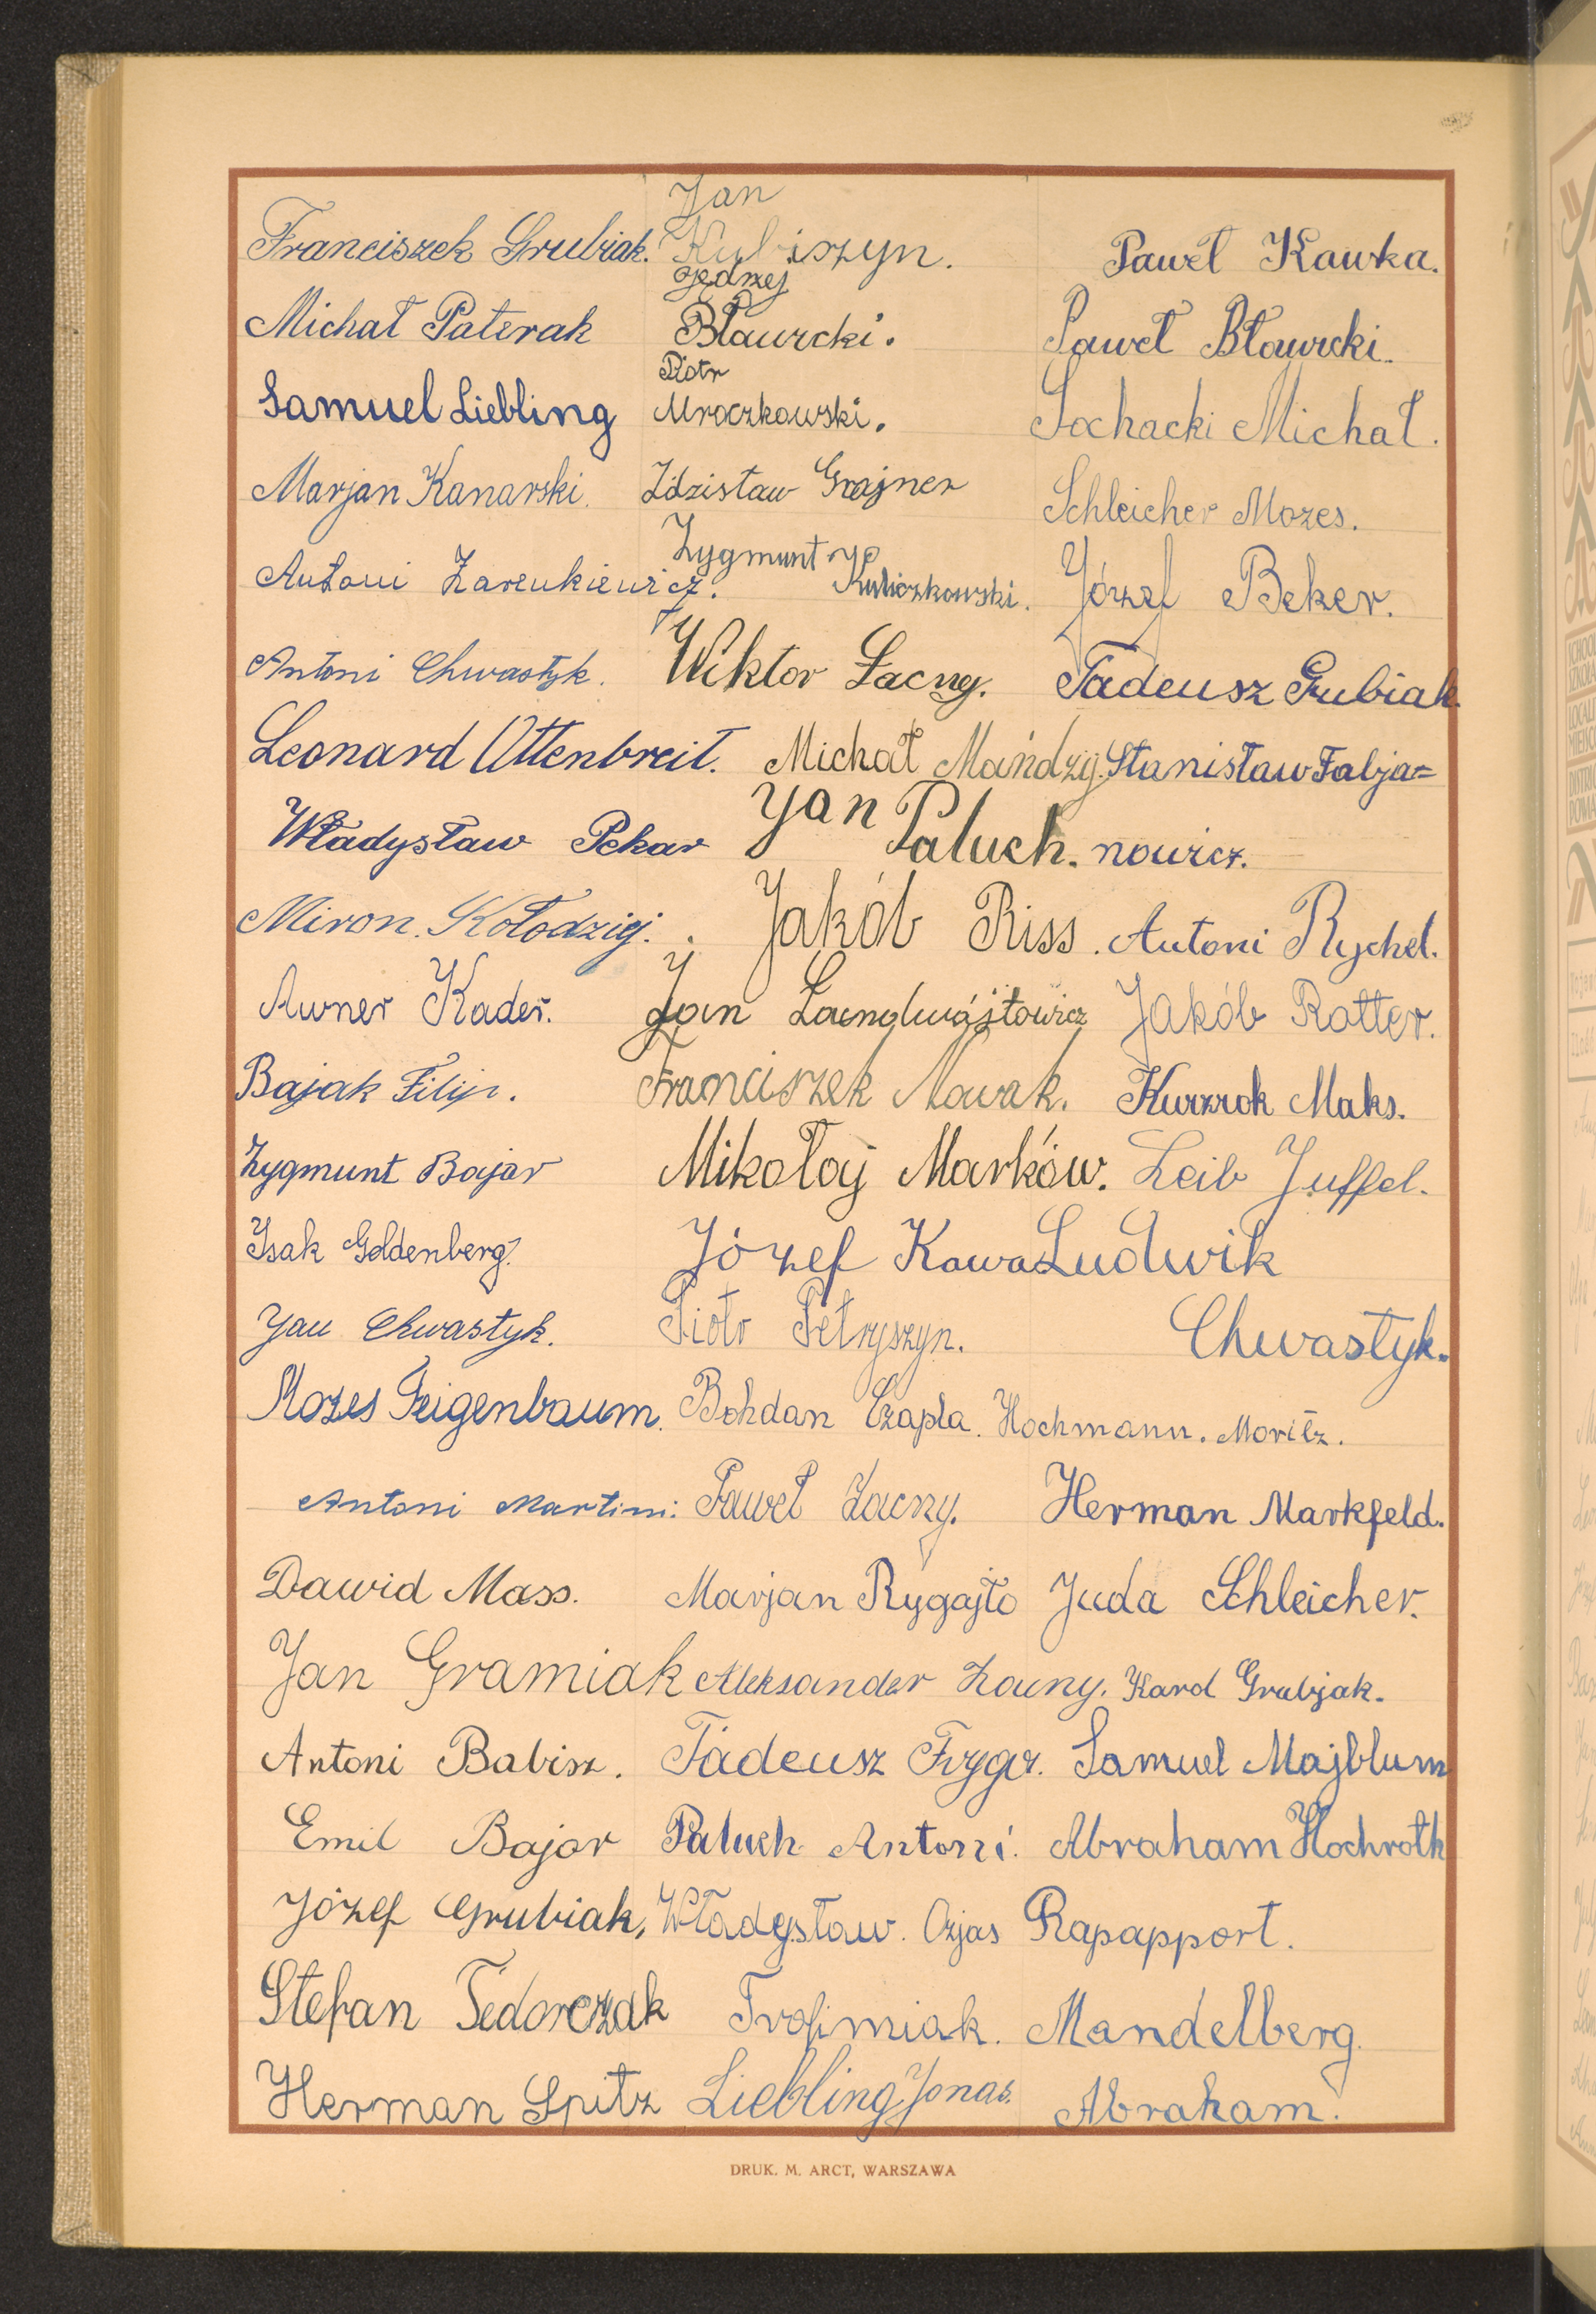 Franciszek Grubiak.
Michał Paterak
Samuel Liebling
Marjan Kanarski.
Antoni Zarenkiewicz.
Antoni Chwastyk.
Leonard Ottenbreit.
Władysław Pekar
Miron. Kołodziej.
Awner Kader.
Bajak Filip.
Zygmunt Bajar
Isak Goldenberg.
Jan Chwastyk.
Mozes Feigenbaum.
Antoni Martini.
Dawid Mass.
Jan Gramiak
Antoni Babisz.
Emil Bajar
Józef Grubiak,
Stefan Fedorczak
Herman Spitz
Jan
Kubiszyn.
Jędrzej
Bławicki.
Piotr
Mroczkowski.
Zdzisław Grajner
Zygmunt
Kuliczkowski.
Wiktor Łacny.
Michał Mańdzij.
Jan
Paluch.
Jakób Riss.
Jan
Franciszek Nowak.
Mikołaj Marków.
Józef Kawa
Piotr Petryszyn.
Bohdan Czapla.
Paweł Łacny.
Marjan Rygajło
Aleksander Łacny.
Tadeusz
Paluch Antoni.
Władysław.
Trofimiak.
Liebling Jonas.
Paweł Kawka.
Paweł Bławicki.
Sochacki Michał.
Schleicher Mozes.
Józef Beker.
Tadeusz Grubiak.
Stanisław Fabja=
nowicz.
Antoni Rychel.
Jakób Rotter.
Kurzrok Maks.
Leib Juffel.
Ludwik
Chwastyk.
Hochmann. Moritz.
Herman Markfeld.
Juda Schleicher.
Karol Grubjak.
Samuel Majblum
Abraham Hochroth
Ozjas Rapapport.
Mandelberg
Abraham.
DRUK. M. ARCT, WARSZAWA